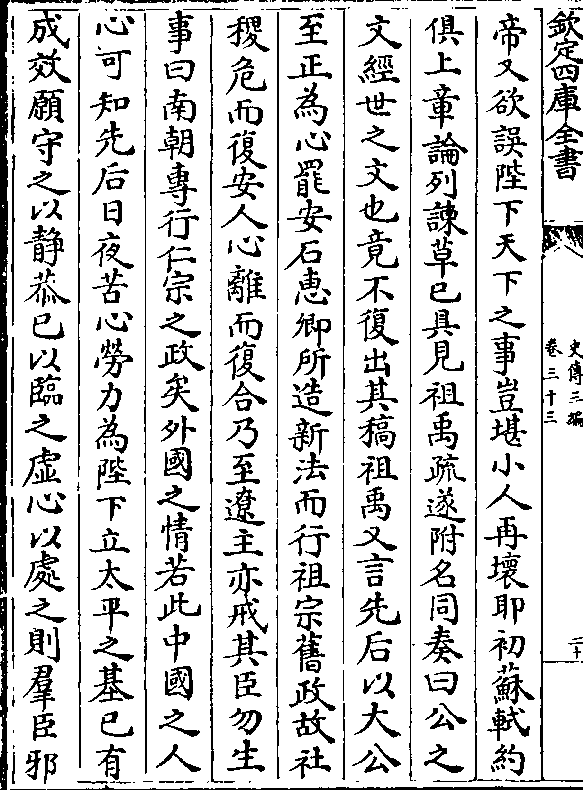 欽定四庫全書
史傳三編
卷三十三
二十
帝又欲誤陛下天下之事豈堪小人再壞耶初蘇軾約
俱上章論列諫草已具見祖禹疏遂附名同奏曰公之
文經世之文也竟不復出其稿祖禹又言先后以大公
至正為心罷安石惠卿所造新法而行祖宗舊政故社
稷危而復安人心離而復合乃至遼主亦戒其臣勿生
事曰南朝專行仁宗之政矣外國之情若此中國之人
心可知先后日夜苦心勞力為陛下立太平之基已有
成效願守之以静恭已以臨之虛心以處之則羣臣邪